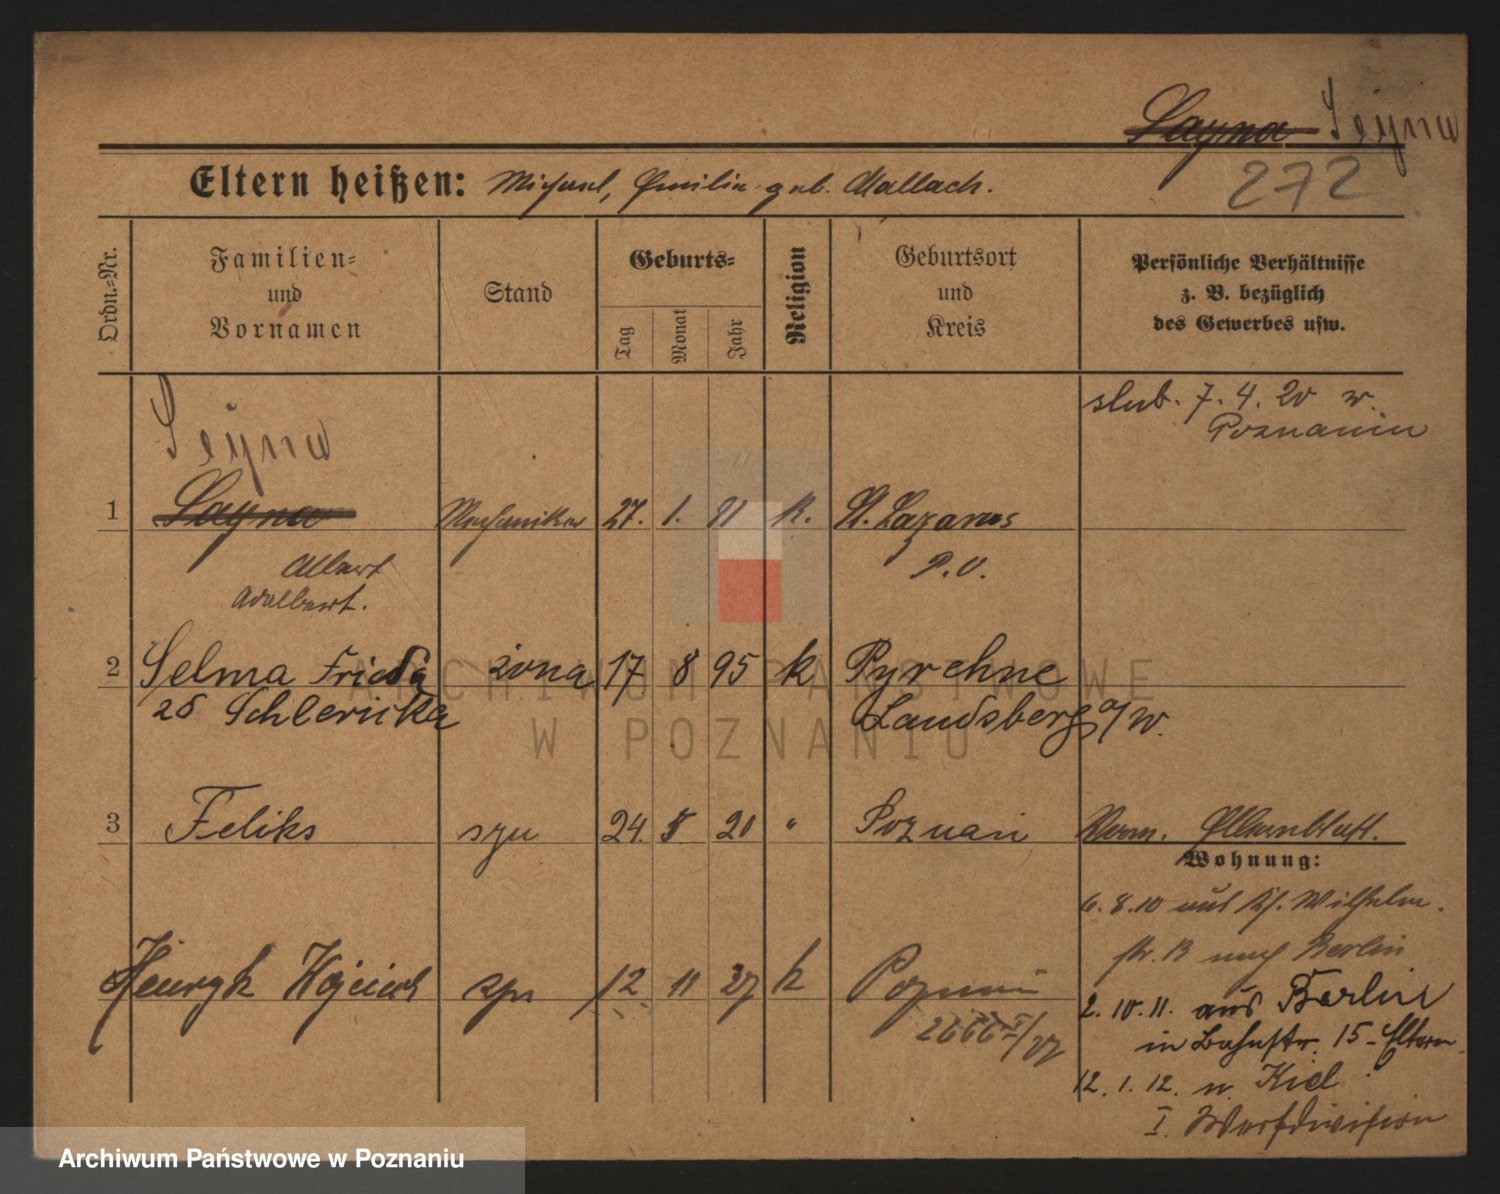 Layna Sejna
272
Eltern heißen: Michael, Emilie geb. Mallach.
Ordn.=Nr.
Familien=
und
Vornamen
Stand
Geburts=
Tag
Monat
Jahr
Religion
Geburtsort
und
Kreis
Persönliche Verhältnisse
z. B. bezüglich
des Gewerbes usw.
slub. 7. 4. 20 w.
Poznaniu
Sejna
1 Layna Mechaniker 27. 1. 91 K. St. Lazarus
Albert P.O.
Adalbert.
2 Selma Frieda żona 17 8 95 k Pyrehne
zd Landsberg a/W.
3 Feliks syn 24. 5. 20 " Poznań
Wohnung:
6.8.10 aus Wilhelm.
str. 13 nach Berlin
Henryk Wojciech syn 12 11 27 k Poznań
2. 10. 11. aus Berlin
in Bahnstr. 15 - Eltern.
12. 1. 12. n. Kiel
I. Werftdivision
ARCHIWUM PAŃSTWOWE
W POZNANIU
Archiwum Państwowe w Poznaniu